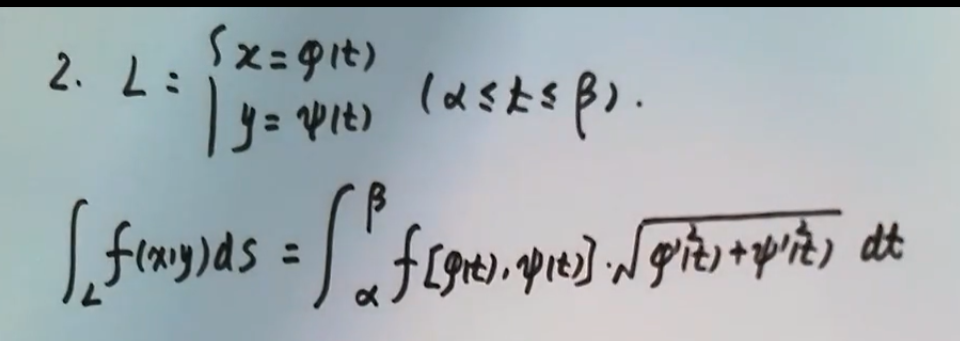 2. L: { x = φ(t)
y = ψ(t) (α ≤ t ≤ β).
∫_L f(x,y)ds = ∫_α^β f[φ(t), ψ(t)]·√(φ'²(t) + ψ'²(t)) dt